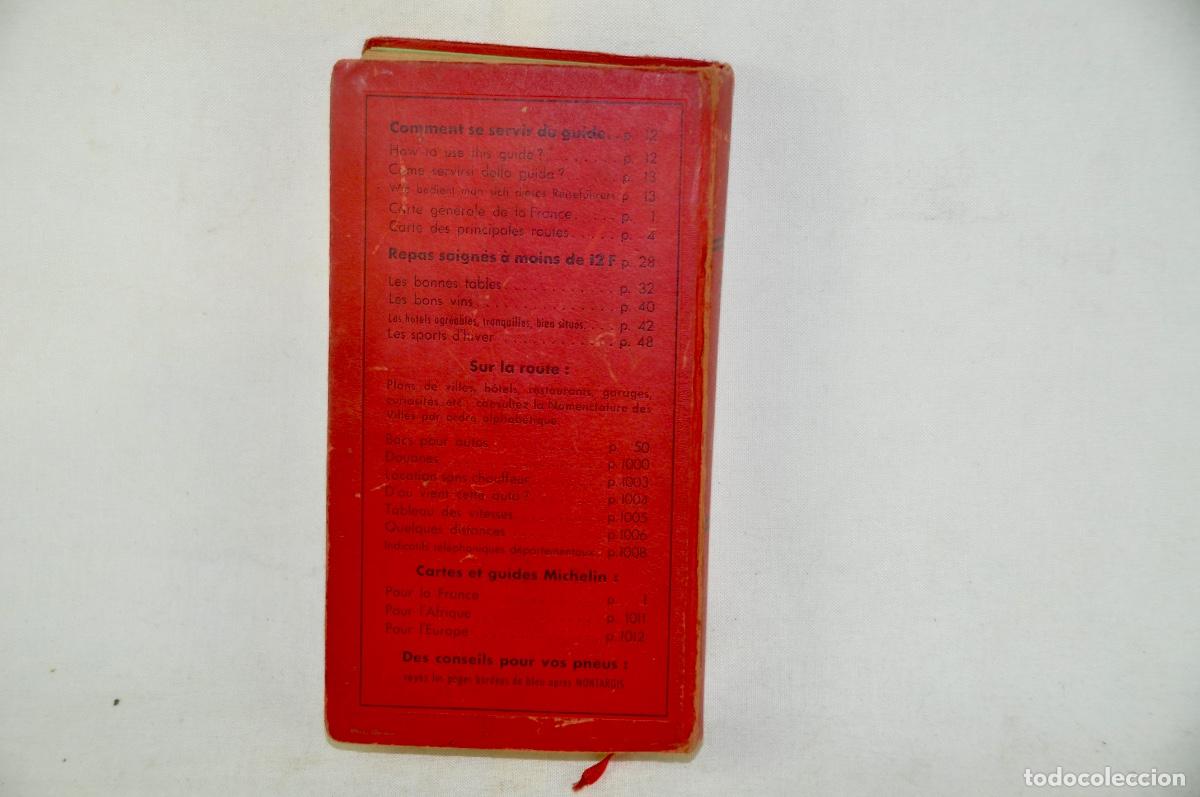 Comment se servir du guide.. p. 12
How to use this guide? ....... p. 12
Come servirsi della guida? ..... p. 13
Wie bedient man sich dieses Reiseführers p. 13
Carte générale de la France..... p. 1
Carte des principales routes..... p. 4
Repas soignés à moins de 12 F p. 28
Les bonnes tables ............ p. 32
Les bons vins ............... p. 40
Les hôtels agréables, tranquilles, bien situés.... p. 42
Les sports d'hiver ........... p. 48
Sur la route :
Plans de villes, hôtels, restaurants, garages,
curiosités, etc., consultez la Nomenclature des
Villes par ordre alphabétique.
Bacs pour autos p. 50
Douanes p. 1000
Location sans chauffeur p. 1003
D'où vient cette auto? p. 1004
Tableau des vitesses p. 1005
Quelques distances p. 1006
Indicatifs téléphoniques départementaux. p. 1008
Cartes et guides Michelin :
Pour la France p. 1
Pour l'Afrique p. 1011
Pour l'Europe p. 1012
Des conseils pour vos pneus :
voyez les pages bordées de bleu après MONTARGIS
todocoleccion